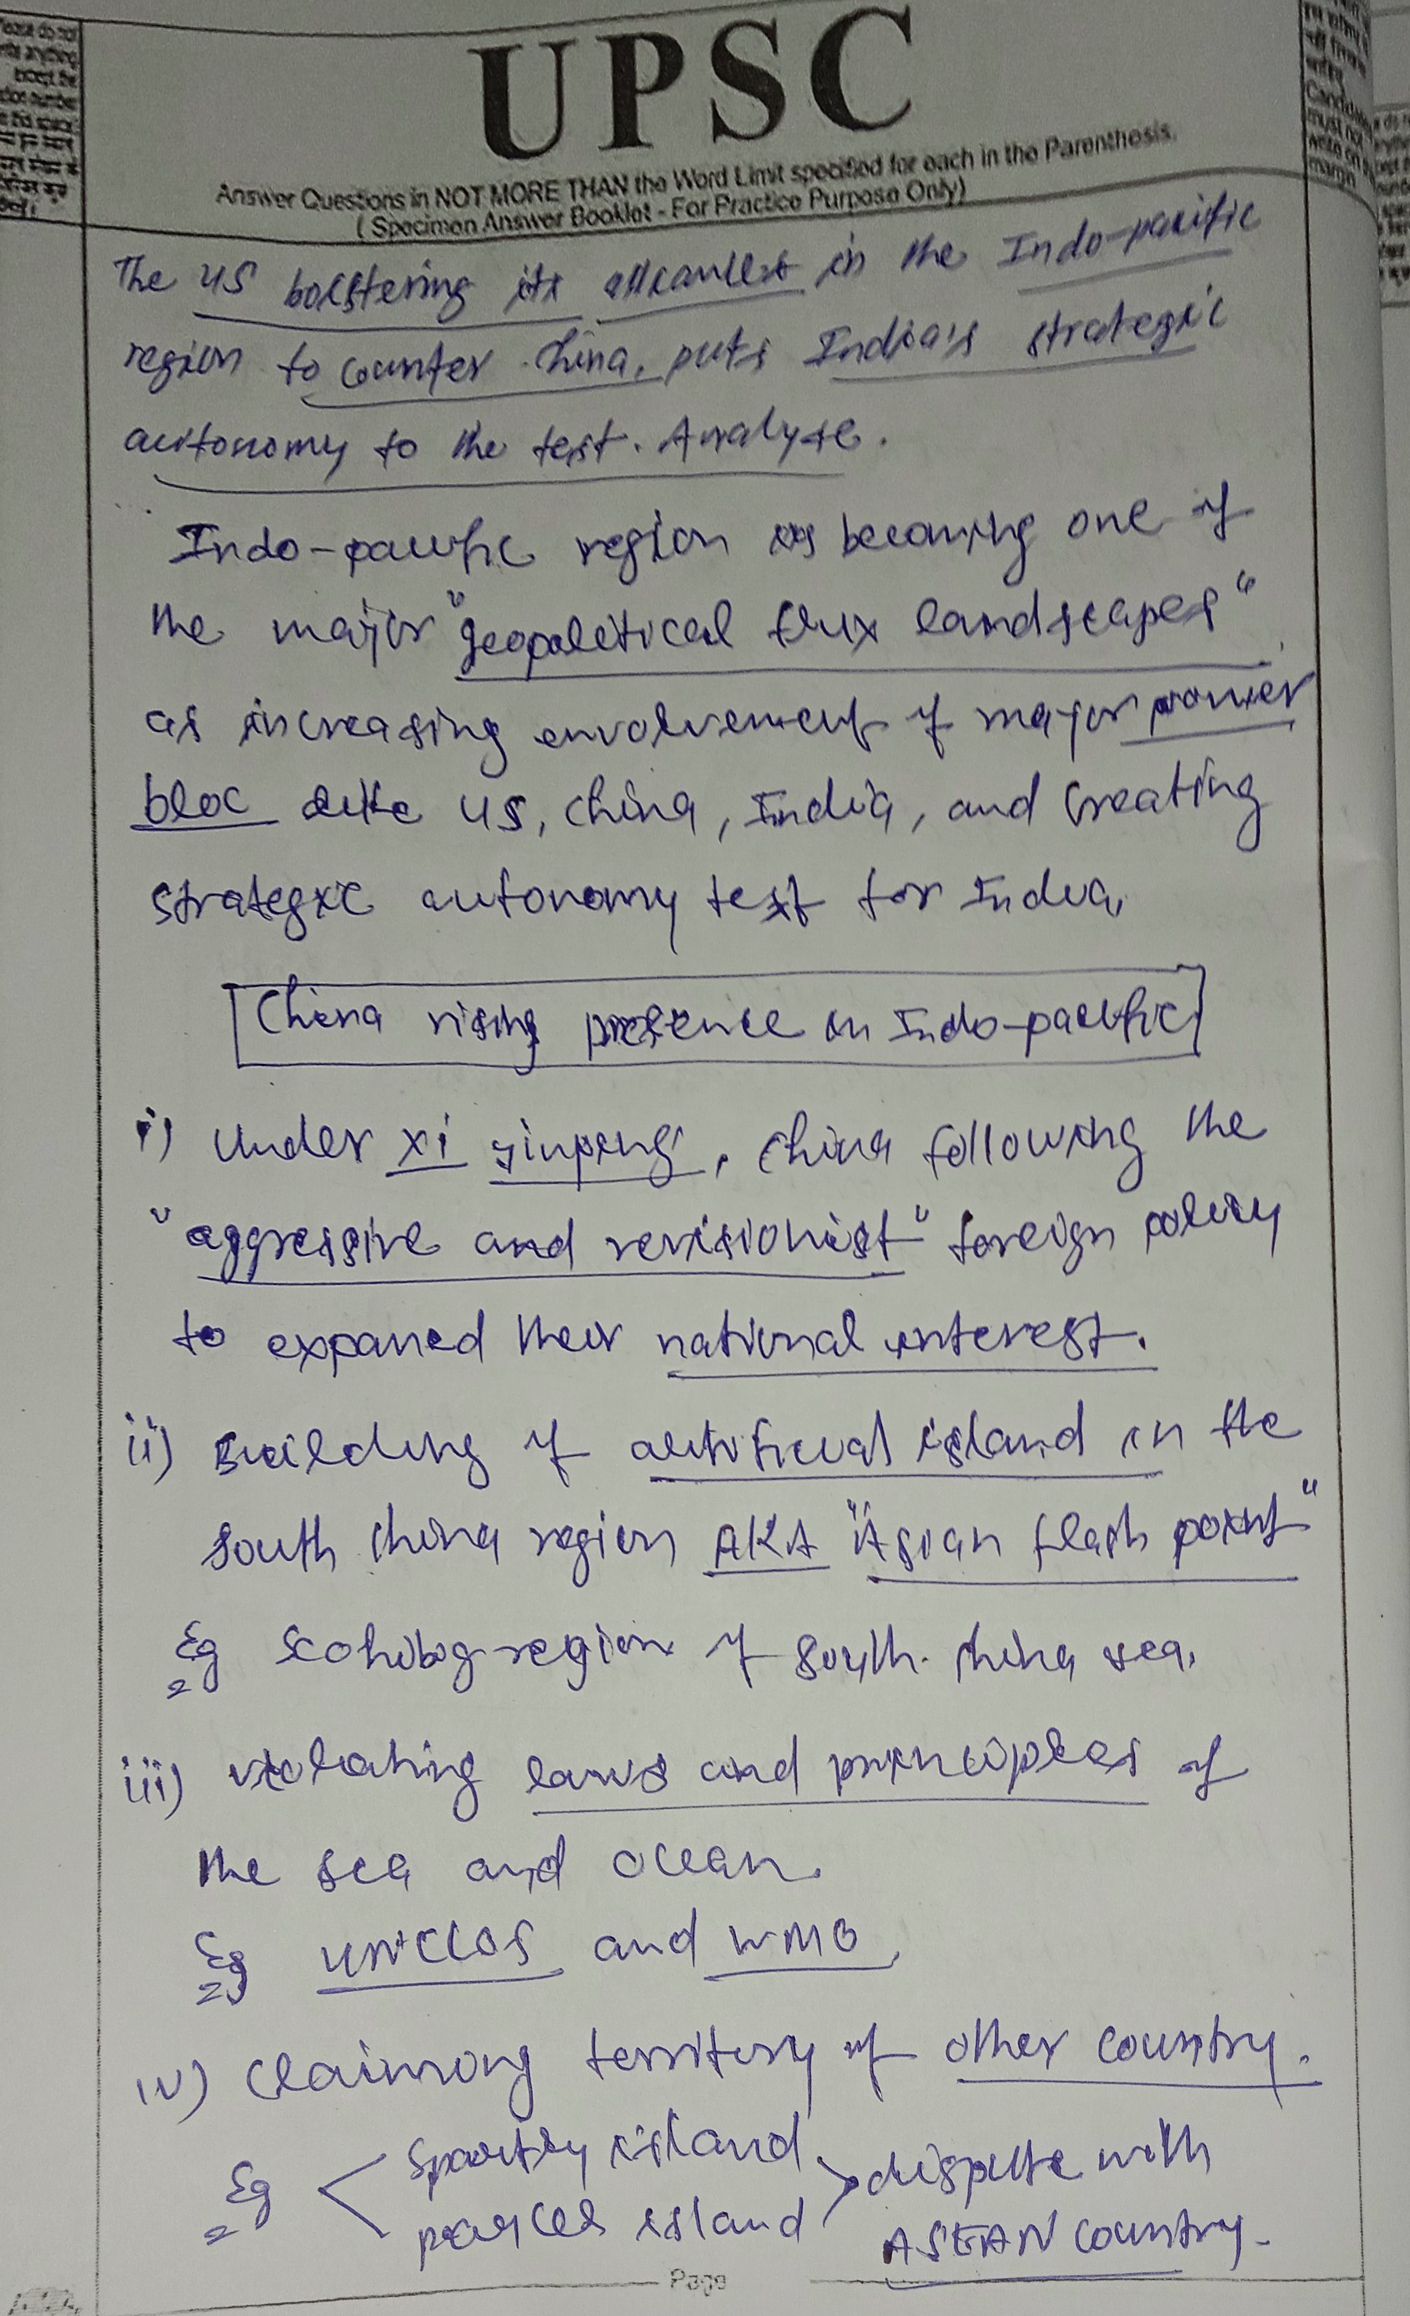 UPSC
Answer Questions in NOT MORE THAN the Word Limit specified for each in the Parenthesis.
( Specimen Answer Booklet - For Practice Purpose Only)
The US bolstering its alliances in the Indo-pacific
region to counter China, puts India's strategic
autonomy to the test. Analyse.
Indo-pacific region is becoming one of
the major "geopolitical flux landscapes"
as increasing envolvement of major power
bloc like US, China, India, and creating
strategic autonomy test for India,
China rising presence in Indo-pacific
i) Under Xi jinping, China following the
"aggressive and revisionist" foreign policy
to expaned their national interest.
ii) Building of artificial island in the
South China region AKA "Asian flash point"
Eg region of South China sea.
iii) violating laws and principles of
the sea and ocean.
Eg UNCLOS and WMO,
iv) Claiming territory of other country.
Eg island dispute with
island ASEAN country.
Page